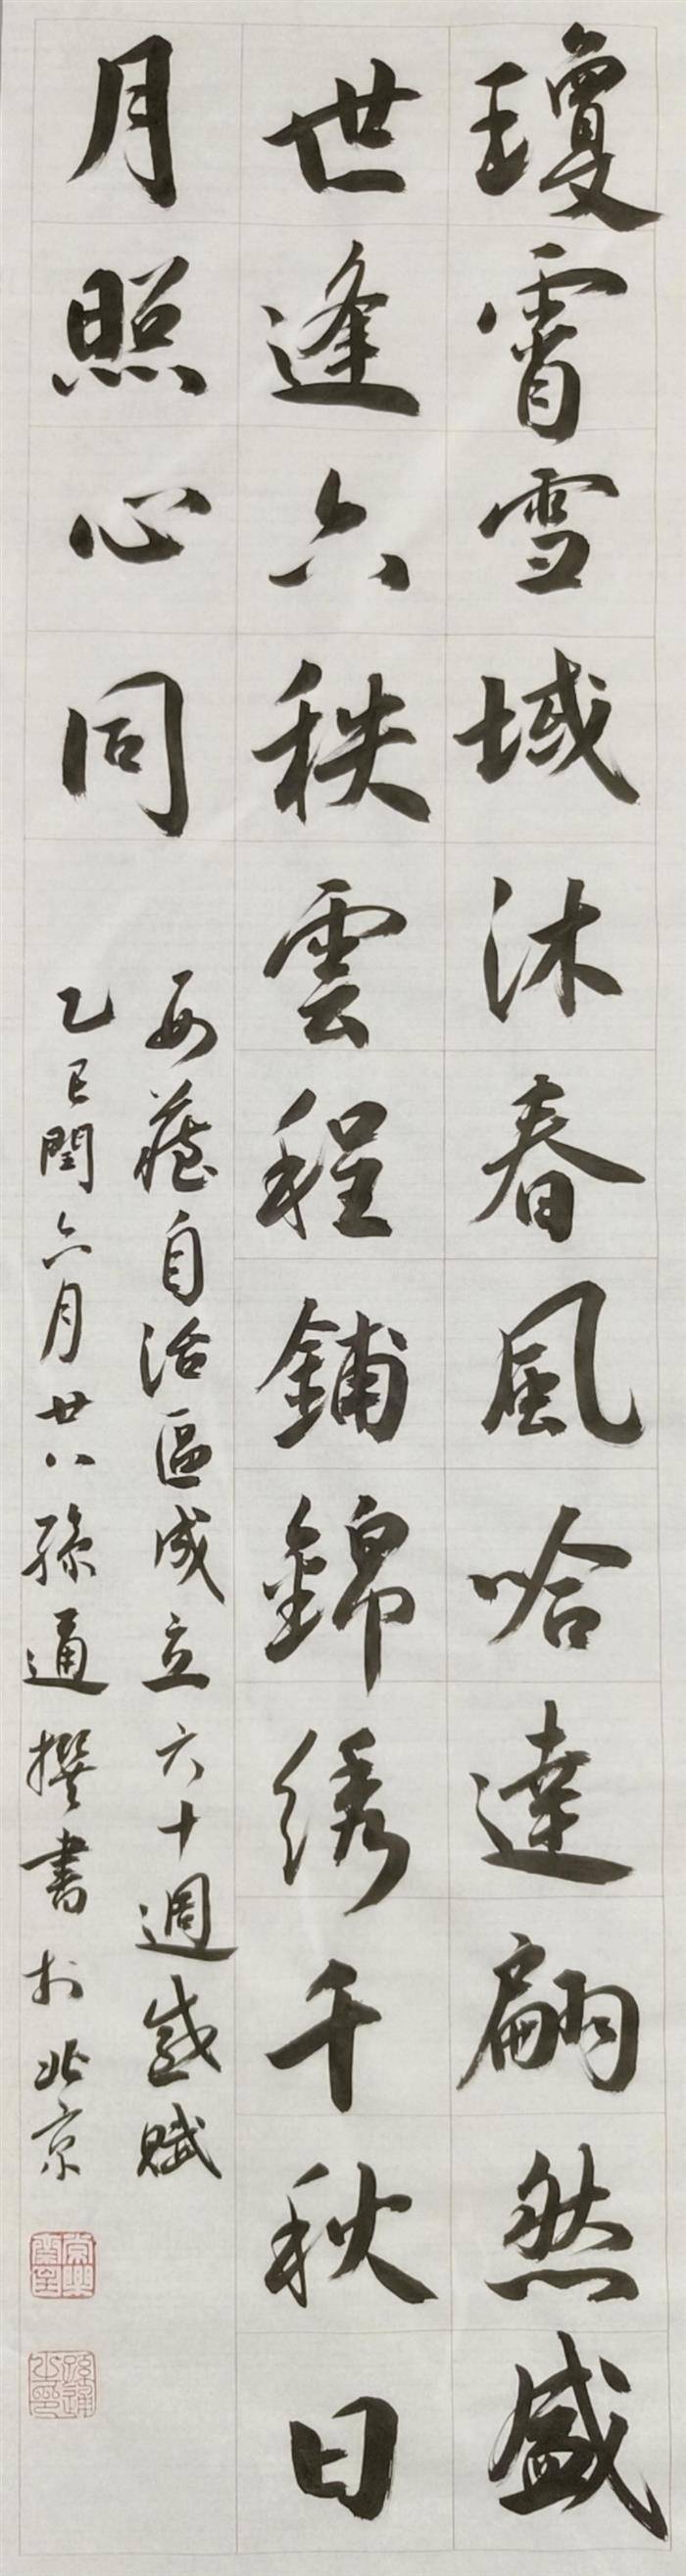 瓊霄雪域沐春風哈達翩然盛
世逢六秩雲程鋪錦绣千秋日
月照心同
西藏自治區成立六十週感賦
乙巳閏六月廿八孫通撰書於北京
孫通之印